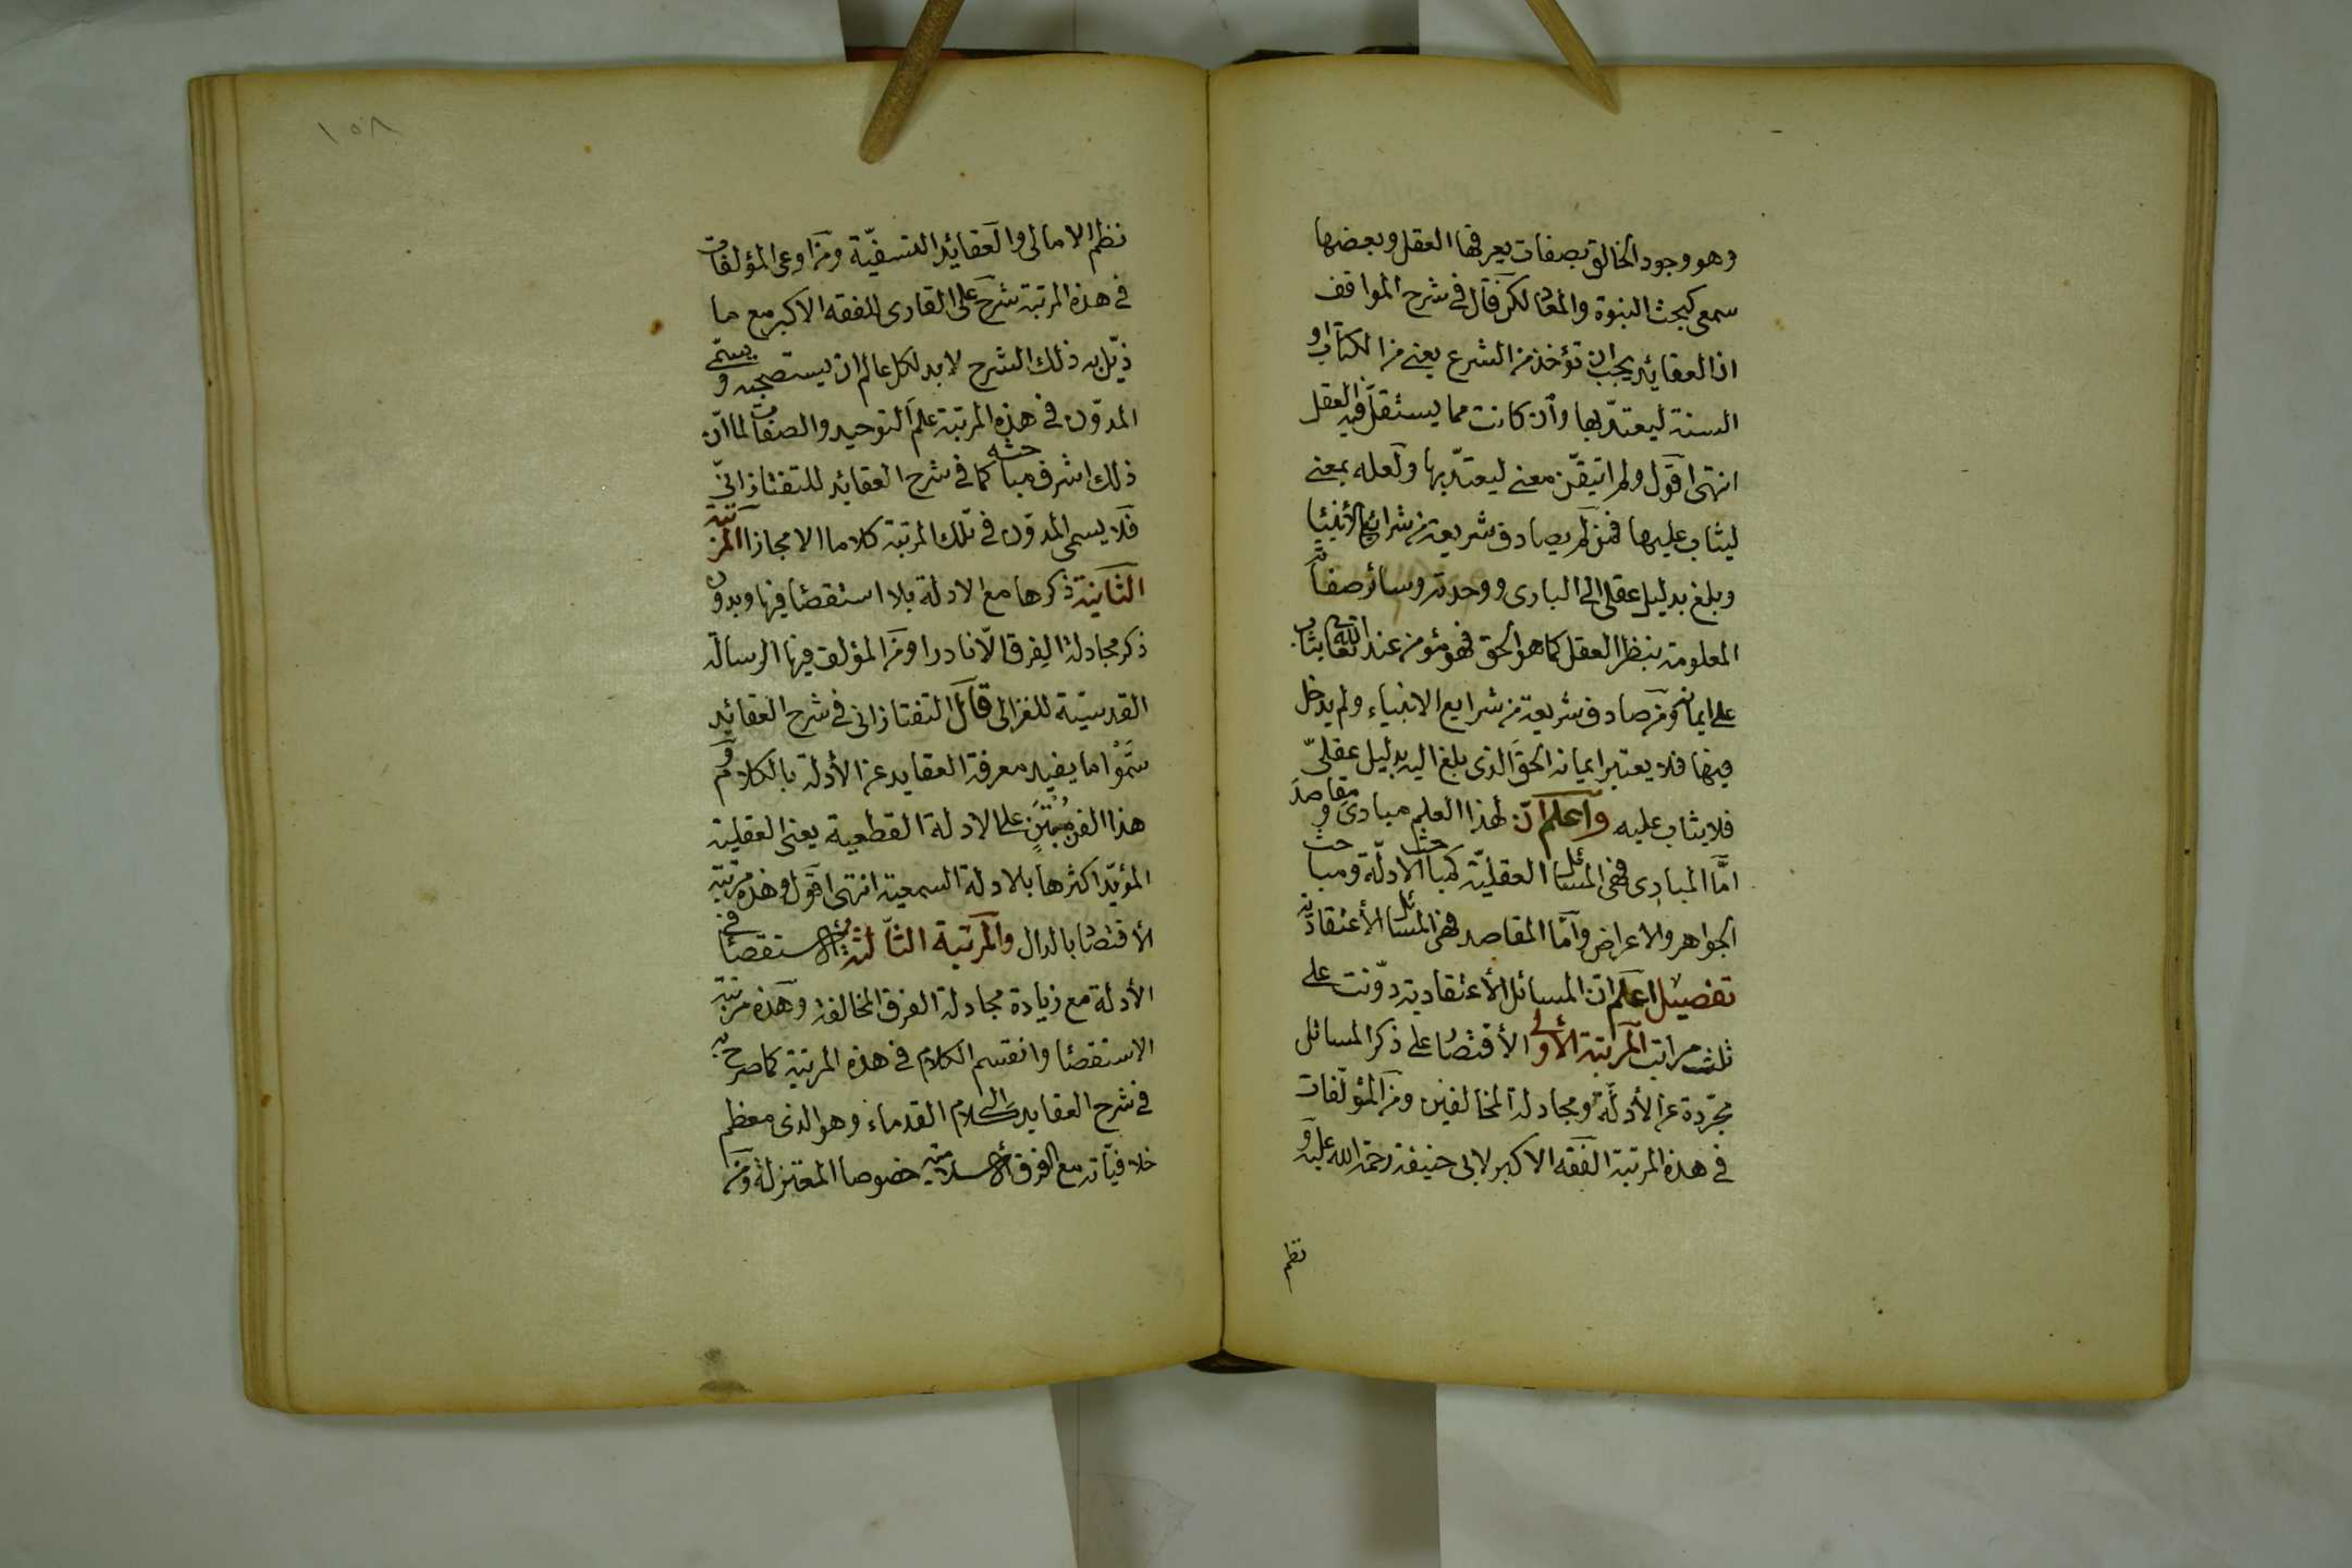 وهو وجود الخالق بصفات يعرفها العقل وبعضها
سمعى كبحث النبوة والمعاد لكن قال فى شرح المواقف
ان العقائد يجب ان تؤخذ من الشرع يعنى من الكتاب او
السنة ليعتدّ بها وان كانت مما يستقلّ فيه العقل
انتهى اقول ولم اتيقّن معنى ليعتدّ بها ولعله بمعنى
ليثاب عليها فمن لم يصادف شريعة من شرائع الأنبيا
وبلغ بدليل عقلى الى البارى ووحدته وسائر صفاته
المعلومة بنظر العقل كما هو الحق فهو مؤمن عند الله تعالى يثاب
على ايمانه ومن صادف شريعة من شرايع الانبياء ولم يدخل
فيها فلا يعتبر ايمانه الحق الذى بلغ اليه بدليل عقلىّ
فلا يثاب عليه واعلم انّ لهذا العلم مبادى ومقاصد
امّا المبادى فهى المسائل العقليّة كمباحث الادلّة ومباحث
الجواهر والاعراض وامّا المقاصد فهى المسائل الأعتقادية
تفصيل اعلم ان المسائل الأعتقادية دوّنت على
ثلث مراتب المرتبة الأولى الأقتصار على ذكر المسائل
مجرّدة عن الأدلّة ومجادلة المخالفين ومن المؤلّفات
فى هذه المرتبة الفقه الاكبر لابى حنيفة رحمة الله عليه و
نظم
١٥٨
نظم الامالى والعقائد النسفيّة ومن اوعى المؤلفات
فى هذه المرتبة شرح على القارى للفقه الاكبر مع ما
ذيّل به ذلك الشرح لا بد لكل عالم ان يستصحبه ويسمّى
المدوّن فى هذه المرتبة علم التوحيد والصفات لما انّ
ذلك اشرف مباحثه كما فى شرح العقائد للتفتازانىّ
فلا يسمى المدوّن فى تلك المرتبة كلاما الا مجازا المرتبة
الثانية ذكرها مع الادلة بلا استقصاء فيها وبدون
ذكر مجادلة الفرق الّا نادرا ومن المؤلف فيها الرسالة
القدسيّة للغزالى قال التفتازانى فى شرح العقائد
سَمَّوْا ما يفيد معرفة العقايد عن الأدلة بالكلام و
هذا الفن مُبْتَنٍ على الادلة القطعية يعنى العقلية
المؤيّد اكثرها بالادلة السمعية انتهى اقول وهذه مرتبة
الأقتصاد بالدال والمرتبة الثالثة الاستقصاء فى
الأدلة مع زيادة مجادلة الفرق المخالفة وهذه مرتبة
الاستقصاء وانقسم الكلام فى هذه المرتبة كما صرح به
فى شرح العقايد الى كلام القدماء وهو الذى معظم
خلافيّاته مع الفرق الاسلامية خصوصا المعتزلة ومن